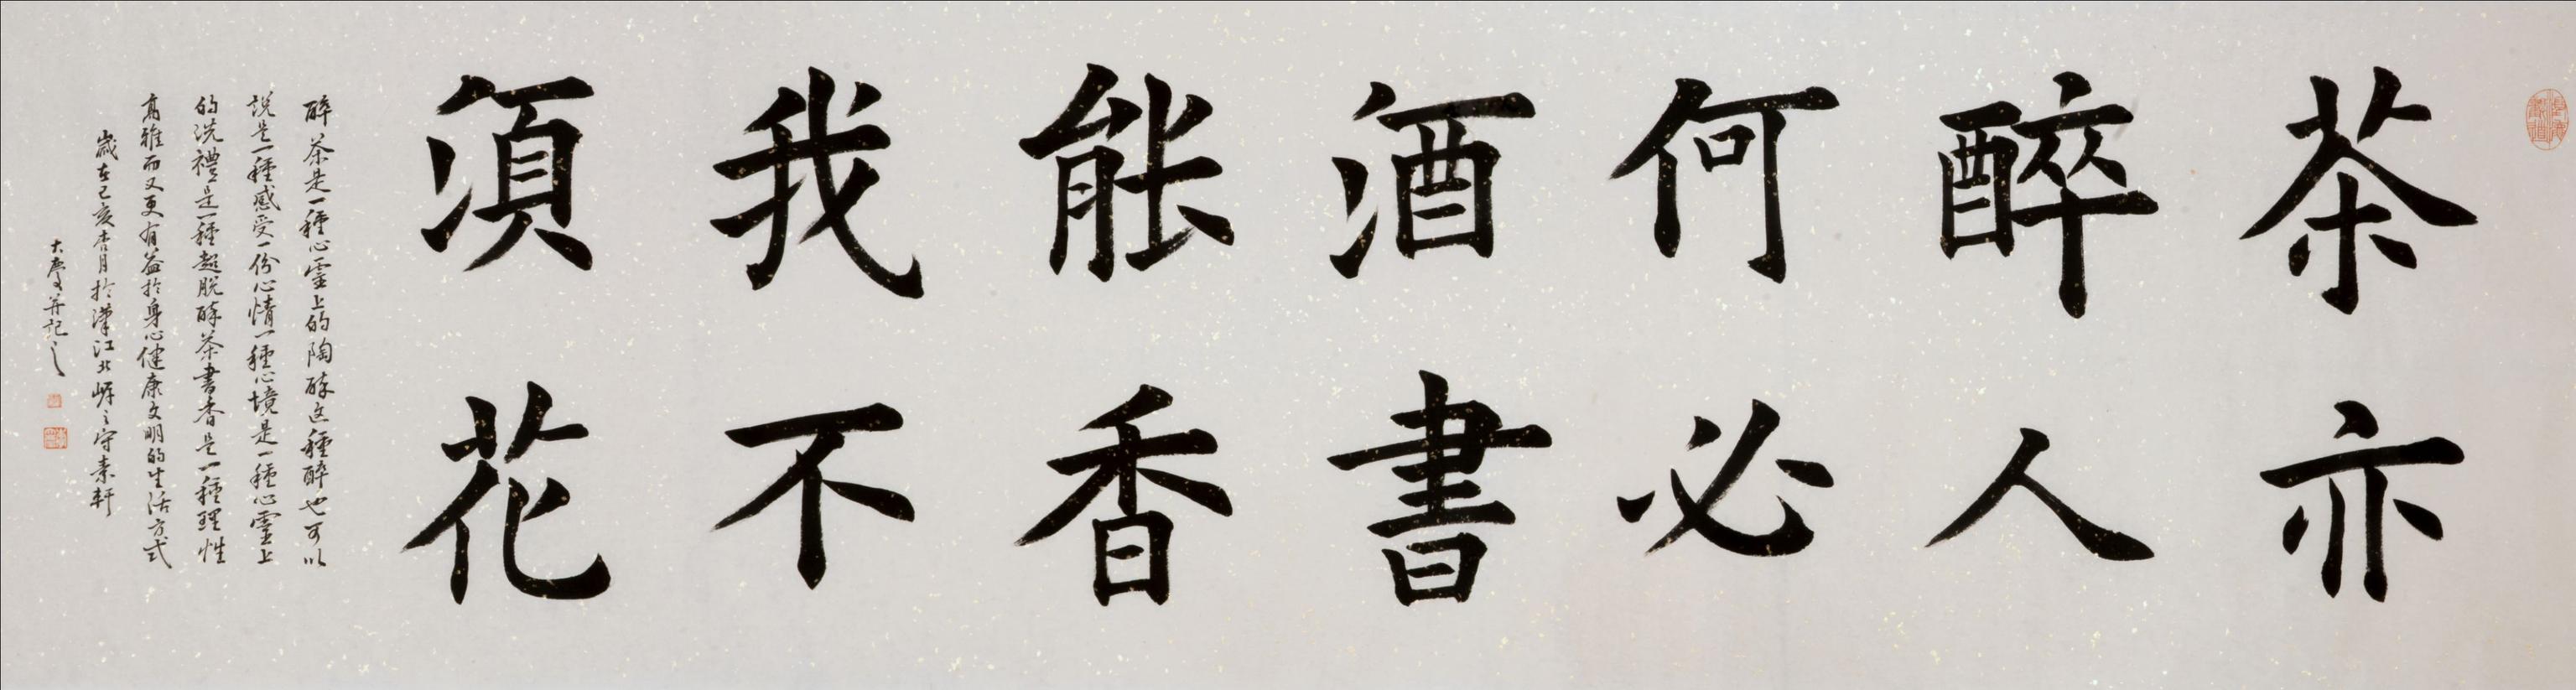 茶亦
醉人
何必
酒書
能香
我不
須花
醉茶是一種心靈上的陶醉這種醉也可以
說是一種感受一份心情一種心境是一種心靈上
的洗禮是一種超脫醉茶書香是一種理性
高雅而又更有益於身心健康文明的生活方式
歲在己亥杏月於漢江北岸之守素軒
大慶并記之